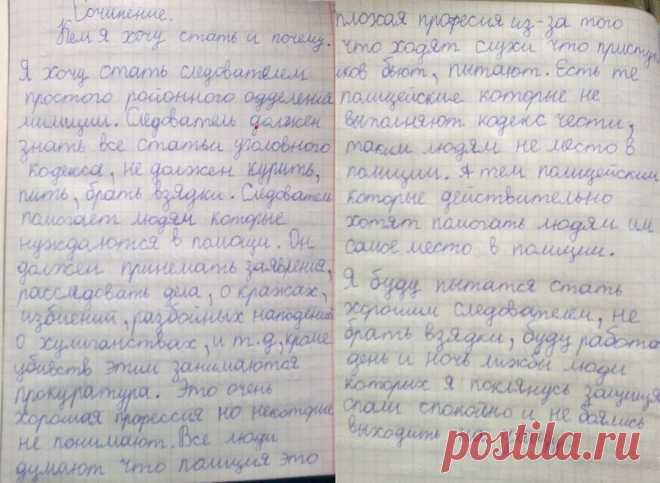 Сочинение.
Кем я хочу стать и почему.
Я хочу стать следователем
простого районного одделения
милиции. Следователь должен
знать все статьи уголовного
кодекса, не должен курить,
пить, брать взядки. Следователь
помогает людям которые
нуждаются в помощи. Он
должен принемать заявления,
расследовать дела, о кражах,
избиений, разбойных нападений
о хулиганствах, и т.д, кроме
убийств этим занимаются
прокуратура. Это очень
хорошая професcия но некоторые
не понимают. Все люди
думают что полиция это
плохая професия из-за того
что ходят слухи что приступ
ков бьют, пытают. Есть те
полицейские которые не
выполняют кодекс чести,
таким людям не место в
полиции. А тем полицейским
которые действительно
хотят помогать людям им
самое место в полиции.
Я буду пытатся стать
хорошим следователем, не
брать взядки, буду работа
день и ночь лижбы люди
которых я поклянусь защищя
спали спокойно и не боялись
выходить на
postila.ru